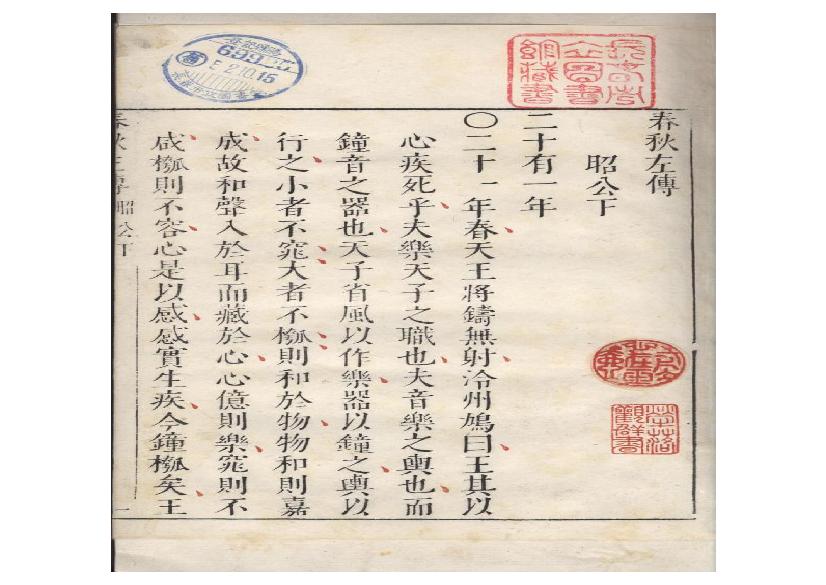 春秋左傳
昭公下
二十有一年
〇二十一年春天王將鑄無射泠州鳩曰王其以
心疾死乎夫樂天子之職也夫音樂之輿也而
鐘音之器也天子省風以作樂器以鐘之輿以
行之小者不窕大者不槬則和於物物和則嘉
成故和聲入於耳而藏於心心億則樂窕則不
咸槬則不容心是以感感實生疾今鐘槬矣王
春秋左傳 昭公下 一
69920
52.10.15